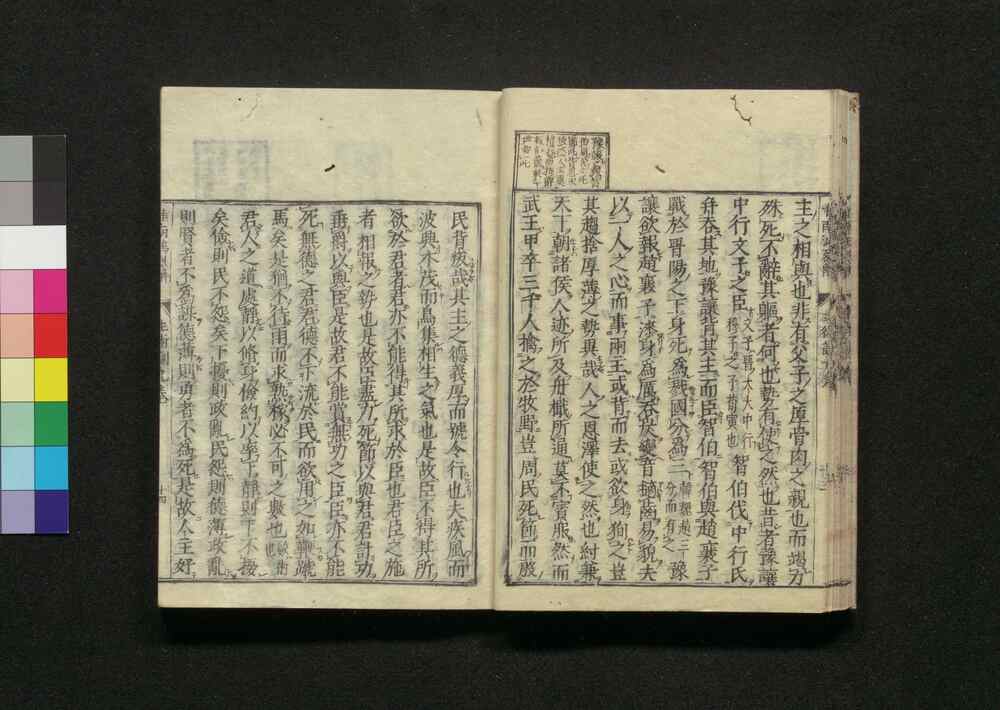 主之相與也非有父子之厚骨肉之親也而竭力
殊死不辭其軀者何也勢有使之然也昔者豫讓
中行文子之臣
智伯伐中行氏
并吞其地豫讓背其主而臣智伯智伯與趙襄子
戰於晉陽之下身死爲戮國分爲三
豫
讓欲報趙襄子漆身爲厲吞炭變音擿齒易貌夫
以一人之心而事兩主或背而去或欲身徇之豈
其趨捨厚薄之勢異哉人之恩澤使之然也紂兼
天下朝諸侯人迹所及舟檝所通莫不賓服然而
武王甲卒三千人擒之於牧野豈周民死節而殷
民背叛哉其主之德義厚而號令行也夫疾風而
波興木茂而鳥集相生之氣也是故臣不得其所
欲於君者君亦不能得其所求於臣也君臣之施
者相報之勢也是故臣盡力死節以與君君計功
垂爵以與臣是故君不能賞無功之臣臣亦不能
死無德之君君德不下流於民而欲用之如鞭蹏
馬矣是猶不待雨而求熟稼必不可之數也
君人之道處靜以修身儉約以率下靜則下不擾
矣儉則民不怨矣下擾則政亂民怨則德薄政亂
則賢者不爲謀德薄則勇者不爲死是故人主好